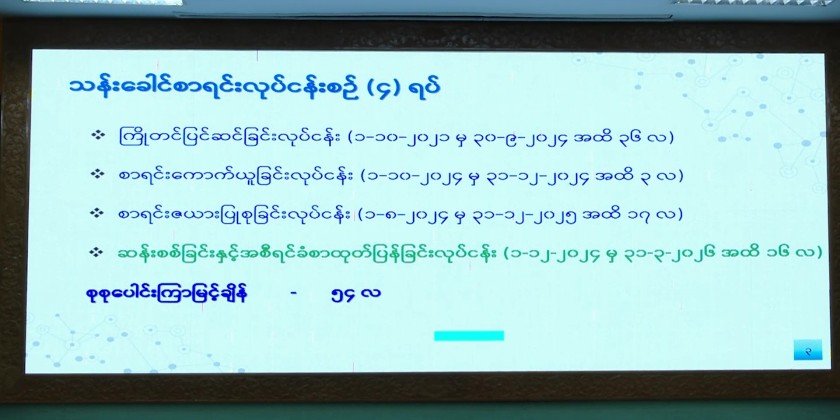 သန်းခေါင်စာရင်းလုပ်ငန်းစဉ် (၄) ရပ်
❖ ကြိုတင်ပြင်ဆင်ခြင်းလုပ်ငန်း (၁-၁၀-၂၀၂၁ မှ ၃၀-၉-၂၀၂၄ အထိ ၃၆ လ)
❖ စာရင်းကောက်ယူခြင်းလုပ်ငန်း (၁-၁၀-၂၀၂၄ မှ ၃၁-၁၂-၂၀၂၄ အထိ ၃ လ)
❖ စာရင်းဇယားပြုစုခြင်းလုပ်ငန်း (၁-၈-၂၀၂၄ မှ ၃၁-၁၂-၂၀၂၅ အထိ ၁၇ လ)
❖ ဆန်းစစ်ခြင်းနှင့်အစီရင်ခံစာထုတ်ပြန်ခြင်းလုပ်ငန်း (၁-၁၂-၂၀၂၄ မှ ၃၁-၃-၂၀၂၆ အထိ ၁၆ လ)
စုစုပေါင်းကြာမြင့်ချိန် - ၅၄ လ
၃